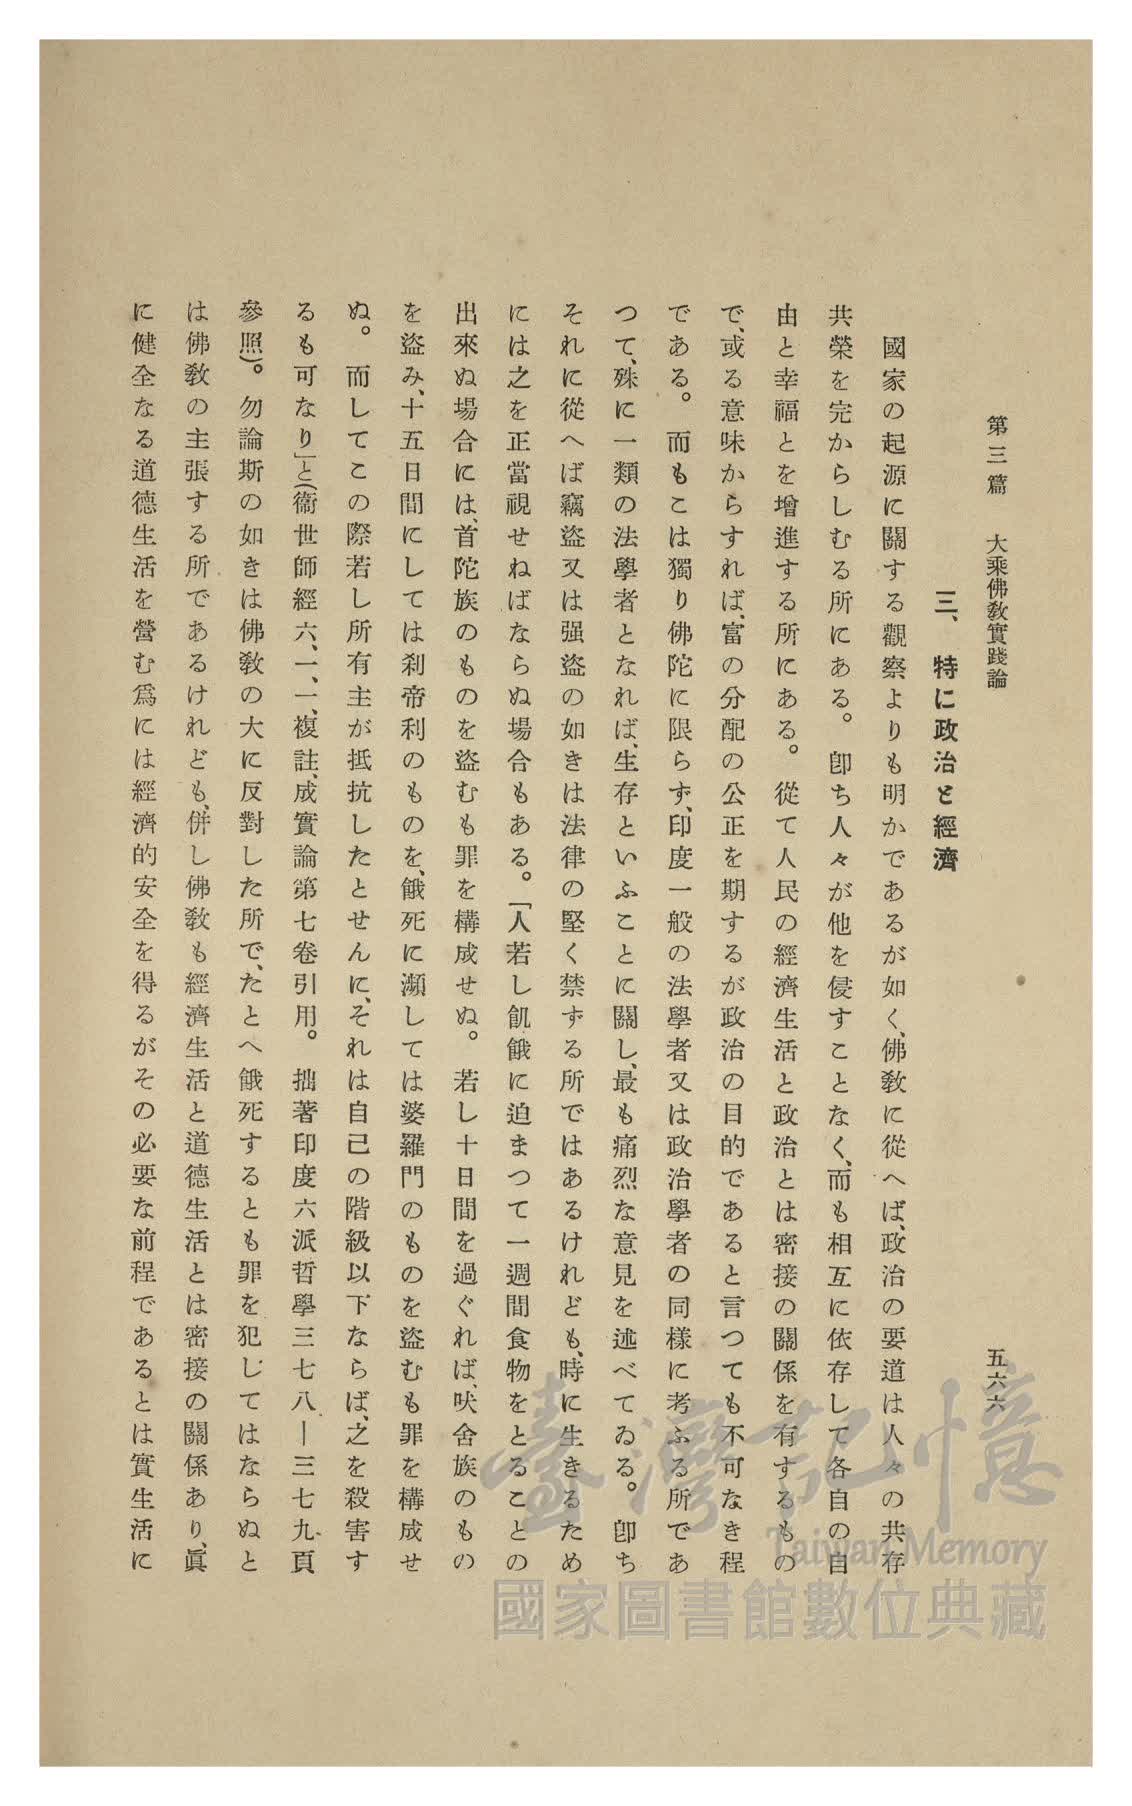 第三篇　大乘佛敎實踐論
五六六
三、特に政治と經濟
國家の起源に關する觀察よりも明かであるが如く、佛敎に從へば、政治の要道は人々の共存
共榮を完からしむる所にある。卽ち人々が他を侵すことなく、而も相互に依存して各自の自
由と幸福とを增進する所にある。從て人民の經濟生活と政治とは密接の關係を有するもの
で、或る意味からすれば、富の分配の公正を期するが政治の目的であると言つても不可なき程
である。而もこは獨り佛陀に限らず、印度一般の法學者又は政治學者の同樣に考ふる所であ
つて、殊に一類の法學者となれば、生存といふことに關し、最も痛烈な意見を述べてゐる。卽ち
それに從へば竊盜又は强盜の如きは法律の堅く禁ずる所ではあるけれども、時に生きるため
には之を正當視せねばならぬ場合もある。「人若し飢餓に迫まつて一週間食物をとることの
出來ぬ場合には、首陀族のものを盜むも罪を構成せぬ。若し十日間を過ぐれば、吠舍族のもの
を盜み、十五日間にしては刹帝利のものを、餓死に瀕しては婆羅門のものを盜むも罪を構成せ
ぬ。而してこの際若し所有主が抵抗したとせんに、それは自己の階級以下ならば、之を殺害す
るも可なり」と(衞世師經六、一、一、複註、成實論第七卷引用。拙著印度六派哲學三七八―三七九頁
參照)。勿論斯の如きは佛敎の大に反對した所で、たとへ餓死するとも罪を犯じてはならぬと
は佛敎の主張する所であるけれども、併し佛敎も經濟生活と道德生活とは密接の關係あり、眞
に健全なる道德生活を營む爲には經濟的安全を得るがその必要な前程であるとは實生活に
臺灣記憶
Taiwan Memory
國家圖書館數位典藏